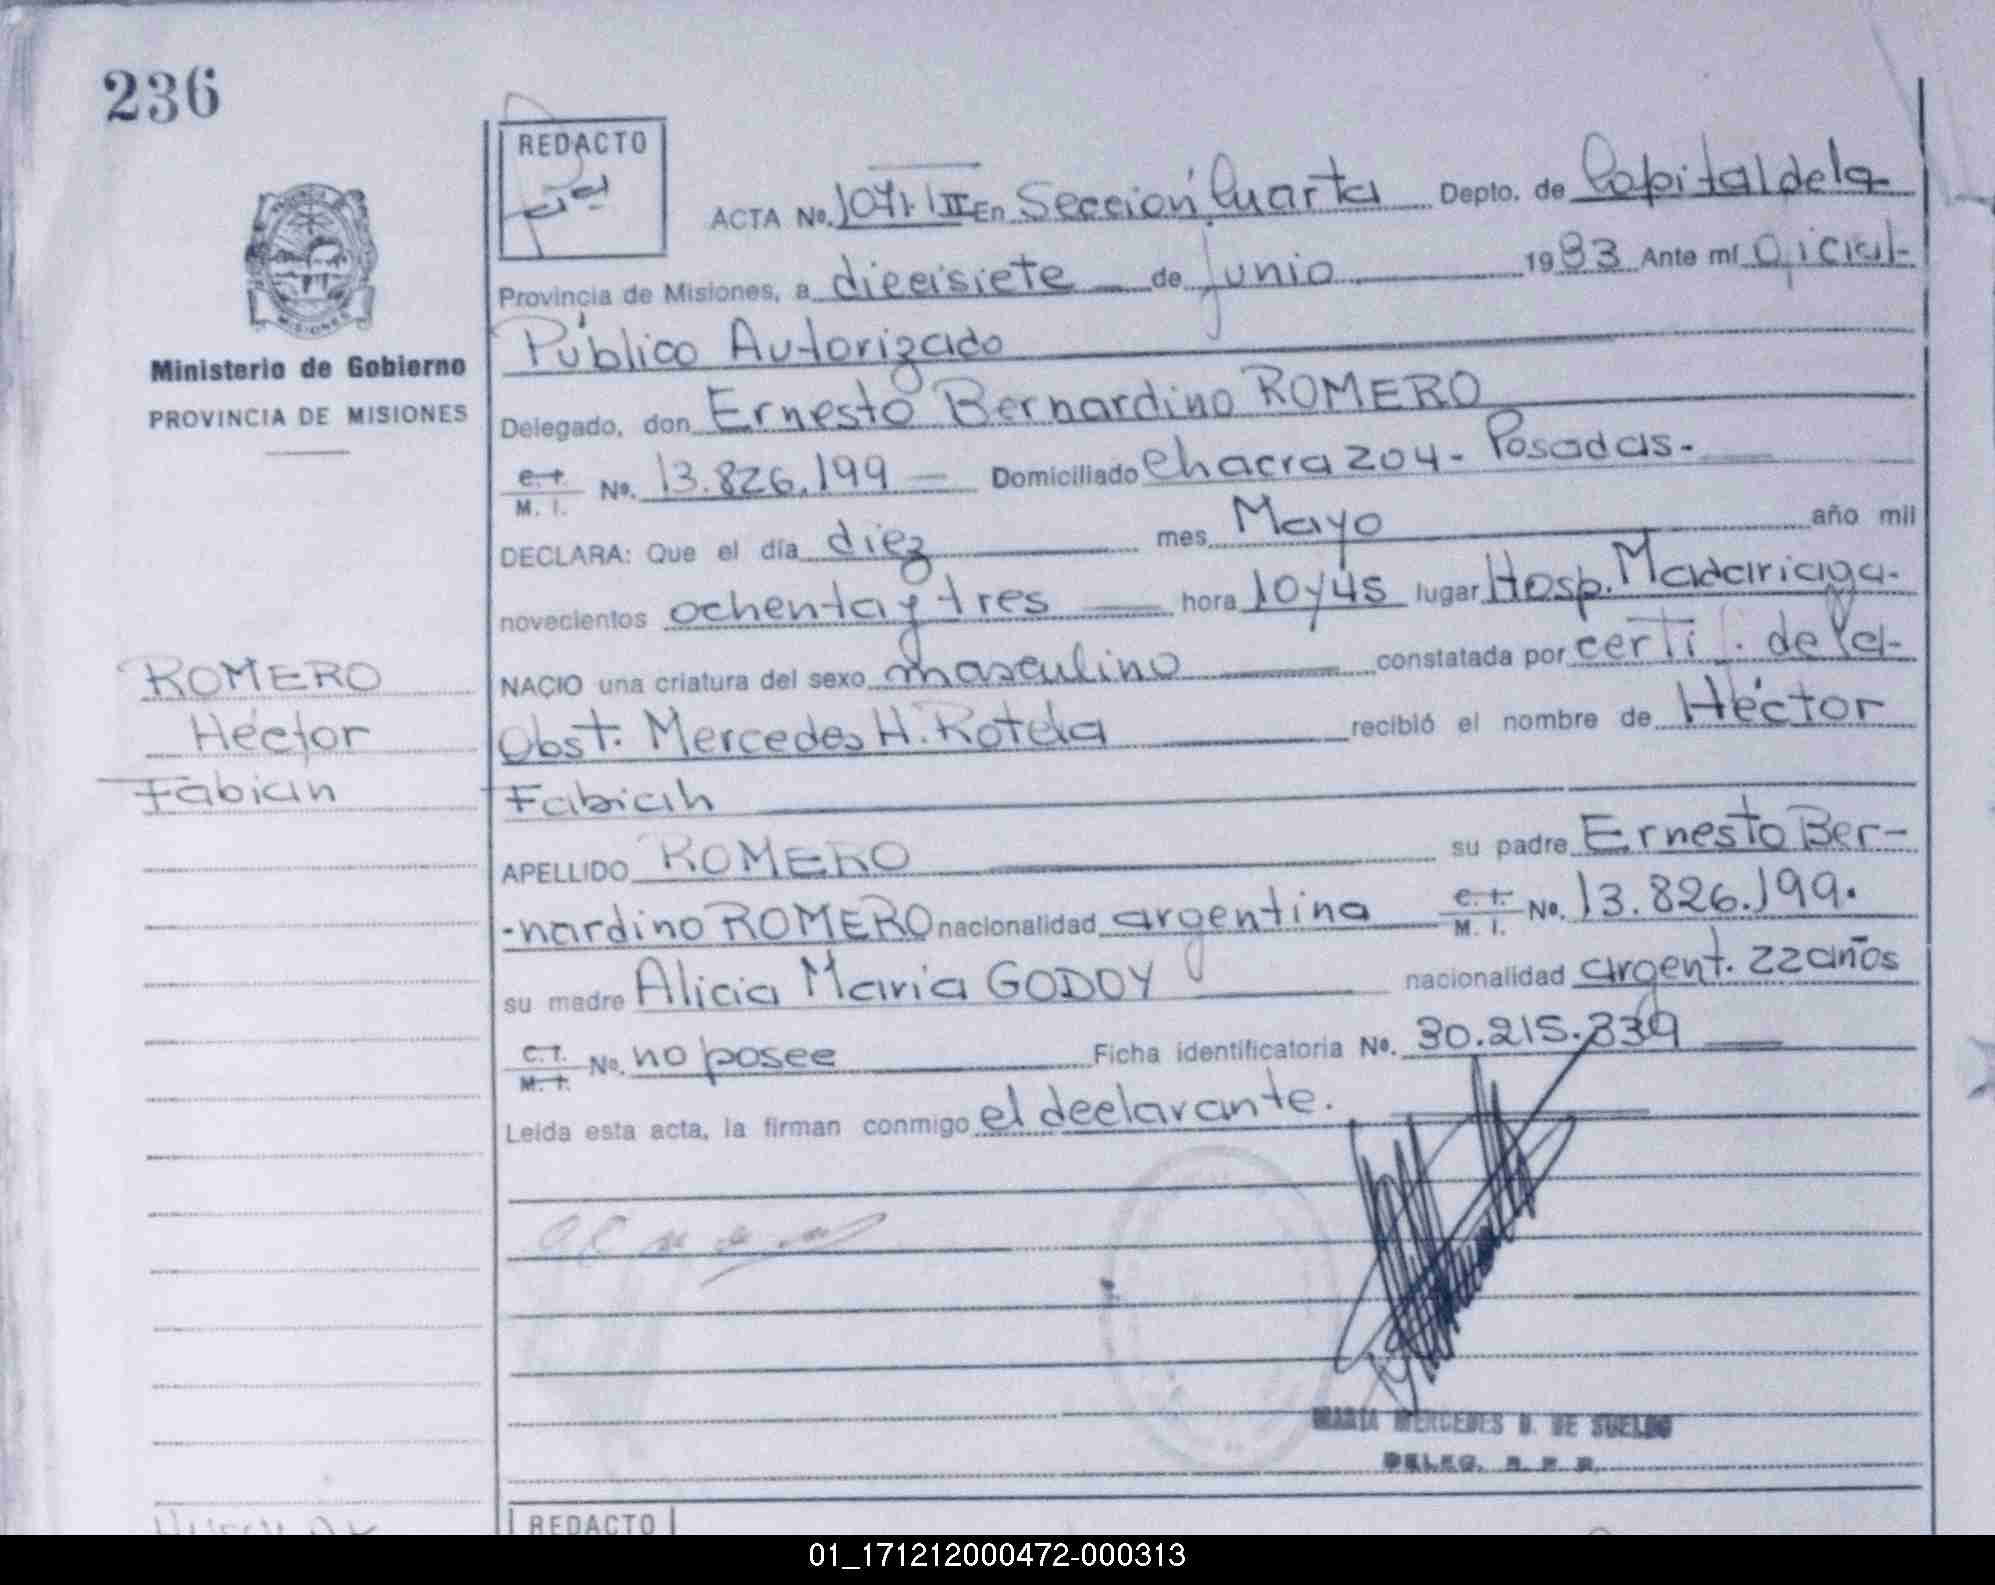 236
REDACTO
ACTA No. 1071·III En Sección Cuarta Depto. de Capital de la
Provincia de Misiones, a diecisiete de junio 1983 Ante mí Oficial
Público Autorizado
MISIONES
Ministerio de Gobierno
PROVINCIA DE MISIONES
Delegado, don Ernesto Bernardino ROMERO
C.I. M. I. No. 13.826.199 Domiciliado Chacra 204 - Posadas.-
DECLARA: Que el día diez mes Mayo año mil
novecientos ochenta y tres hora 10y45 lugar Hosp. Madariaga.
NACIO una criatura del sexo masculino constatada por certif. de la
Obst. Mercedes H. Rotela recibió el nombre de Héctor
Fabian
ROMERO
Héctor
Fabian
APELLIDO ROMERO su padre Ernesto Ber-
-nardino ROMERO nacionalidad argentina C.I. M. I. No. 13.826.199.
su madre Alicia Maria GODOY nacionalidad argent. 22 años
C.I. M.I. No. no posee Ficha identificatoria No. 30.215.339
Leída esta acta, la firman conmigo el declarante.
MARIA MERCEDES D. DE SUELDO
DELEG. R. P. P.
REDACTO
01_171212000472-000313